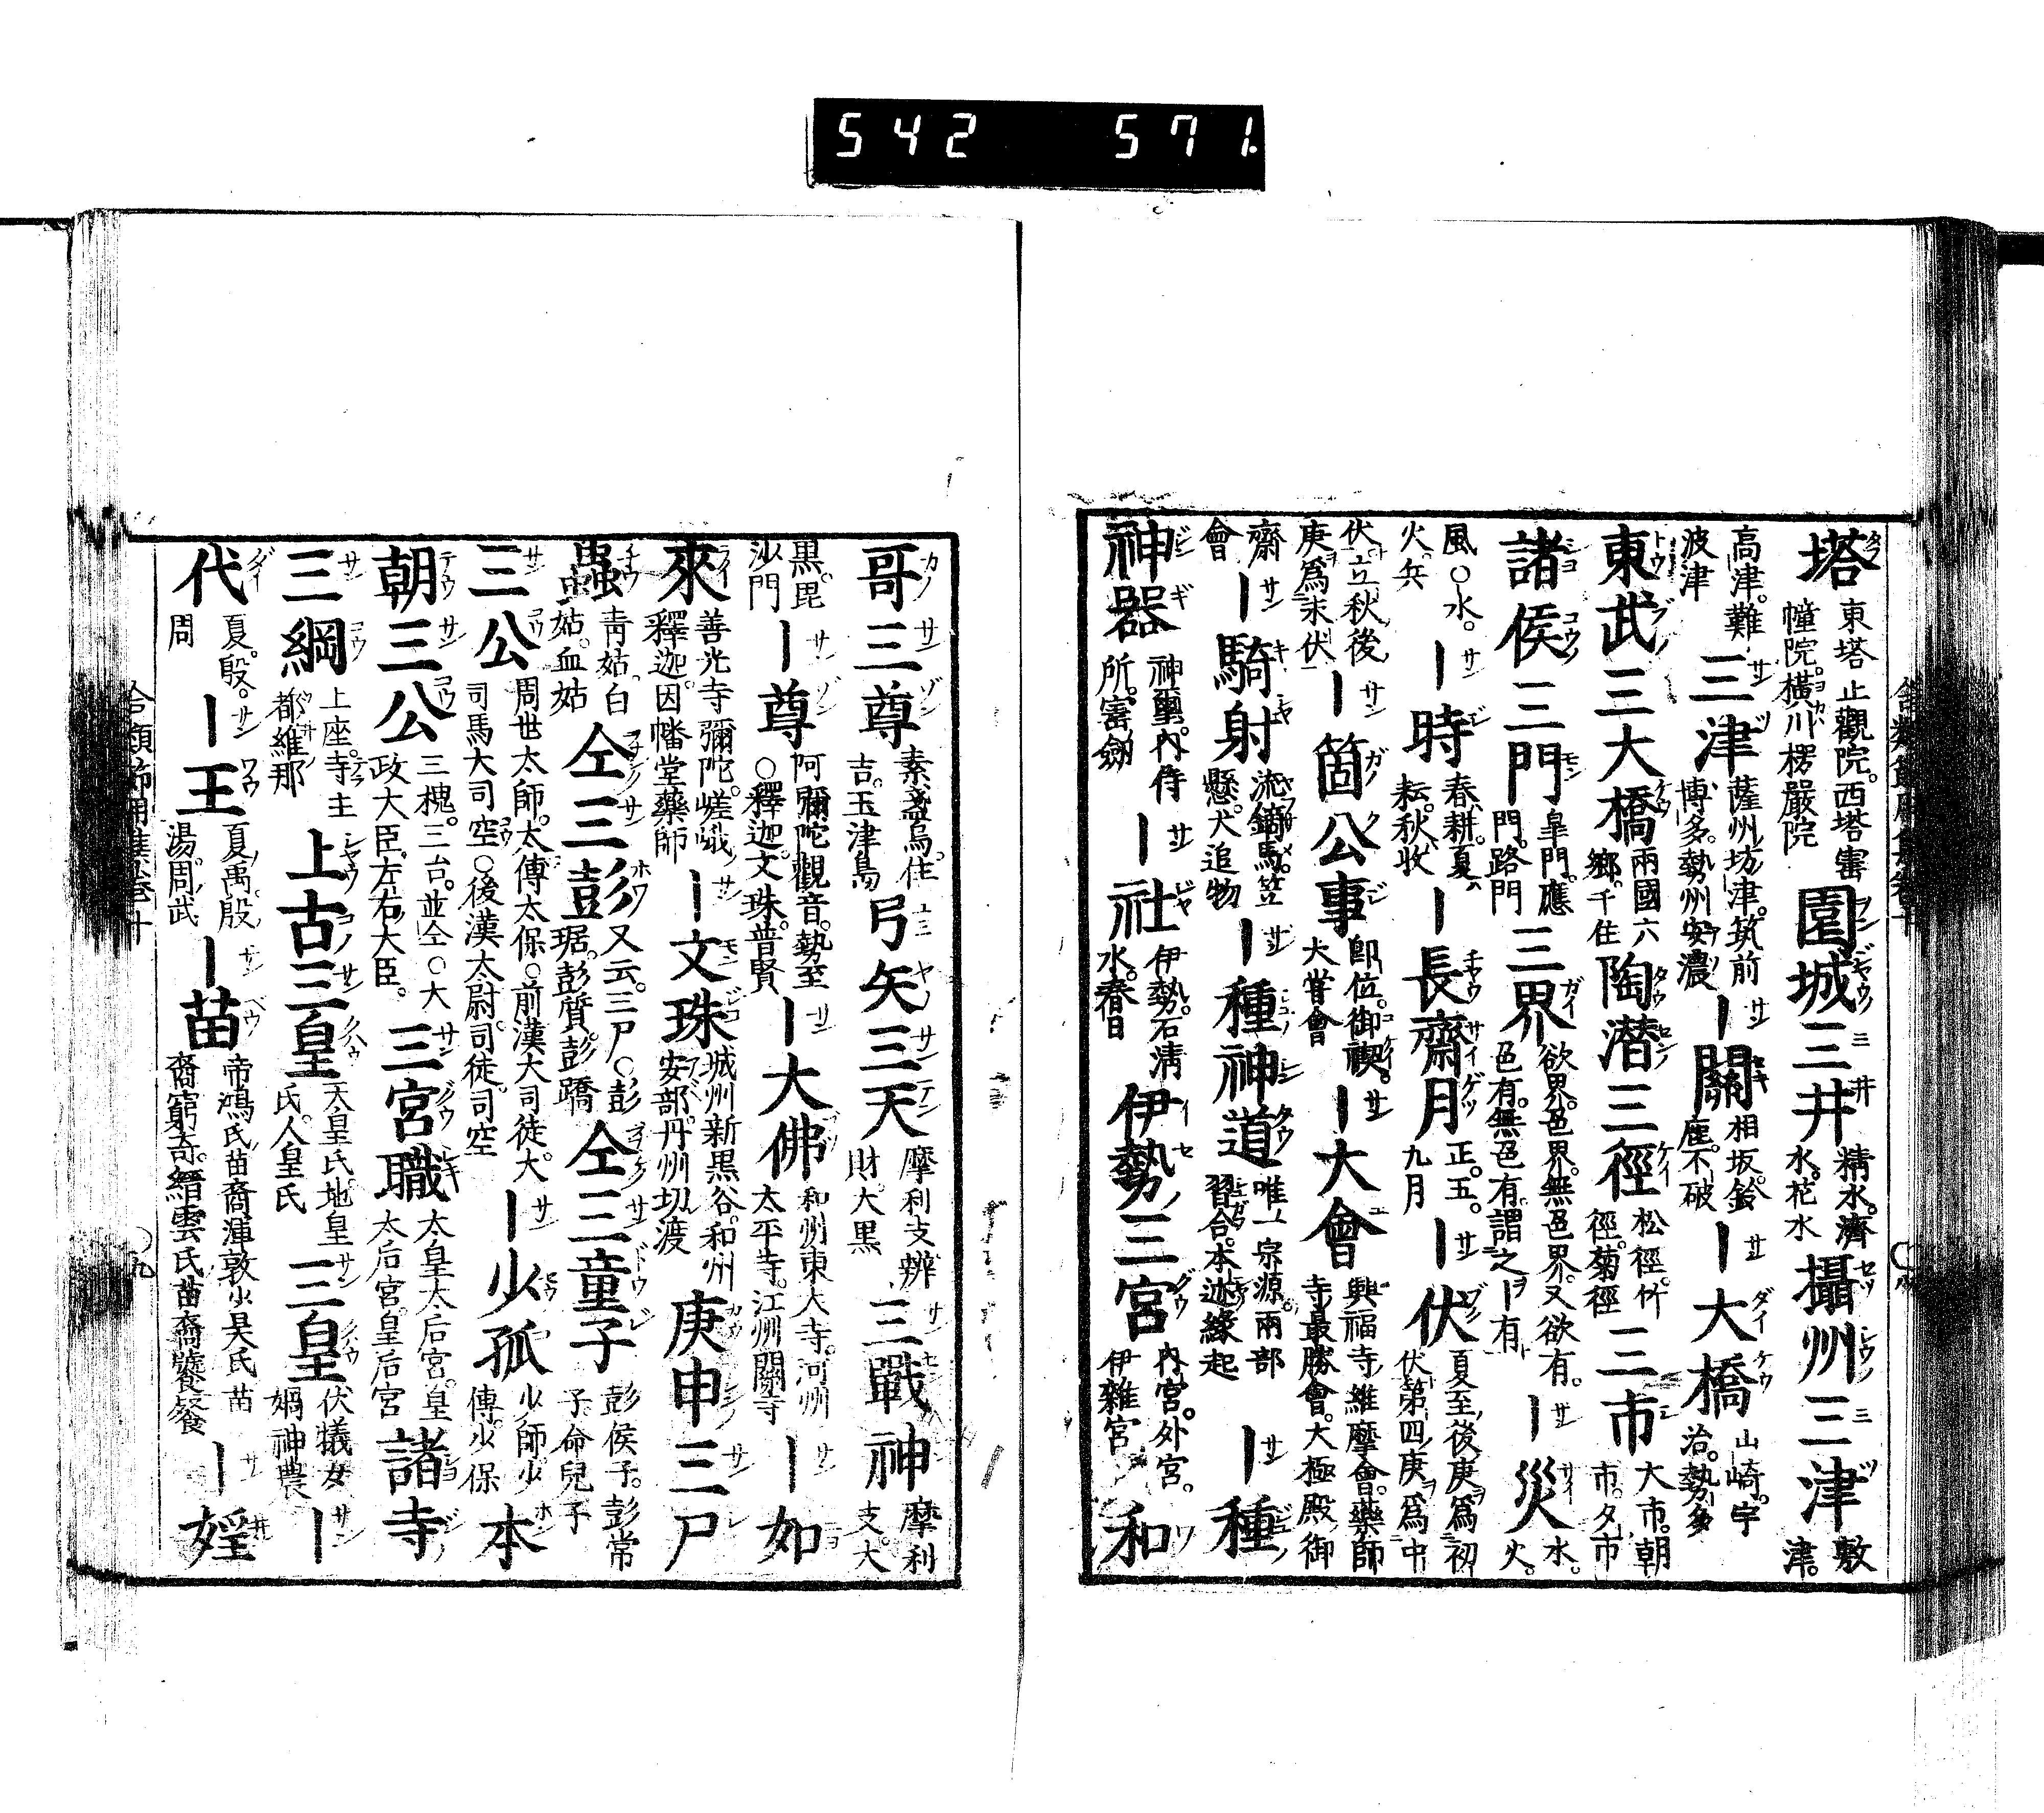 542 571.
塔 東塔 止觀院。西塔 寳幢院。横川 楞嚴院 園城三井 精水。濟水。花水 攝州三津 敷津。
高津。難波津 三津 薩州坊津。筑前博多。勢州安濃 ー關 相坂。鈴鹿。不破 ー大橋 山崎。宇治。勢多
東武三大橋 兩國 六郷。千住 陶潜三徑 松徑。竹徑。菊徑 三市 大市。朝市。夕市
諸侯三門 皐門。應門。路門 三界 欲界。色界。無色界。又欲有。色有。無色有。謂之ヲー有 ー災 水。火。
風○水。火。兵 ー時 春耕。夏耘。秋收 ー長齋月 正。五。九月 ー伏 夏至後庚爲初伏第四庚爲中
伏立秋後庚爲末伏 ー箇公事 即位。御禊。大甞會 ー大會 興福寺維摩會。藥師寺最勝會。大極殿御
齋會 ー騎射 流鏑馬。笠懸。犬追物 ー種神道 唯一宗源。兩部習合。本迹縁起 ー種
神器 神璽。内侍所。寳劔 ー社 伊勢。石清水。春日 伊勢三宮 内宮。外宮。伊雜宮 和
哥三尊 素盞烏。住吉。玉津島 弓矢三天 摩利支。辨財。大黒 三戰神 摩利支。大
黒。毘沙門 ー尊 阿彌陀。觀音。勢至○釋迦。文珠。普賢 ー大佛 和州東大寺。河州太平寺。江州關寺 ー如
來 善光寺彌陀。嵯峨釋迦。因幡堂藥師 ー文珠 城州新黒谷。和州安部。丹州切渡 庚申三尸
蟲 青姑。白姑。血姑 仝三彭 又云。三尸○彭琚。彭質。彭蹻 仝三童子 彭侯子。彭常子。命兒子
三公 周世太師。太傅。太保○前漢大司徒。大司馬大司空○後漢太尉。司徒。司空 ー少孤 少師。少傅。少保 本
朝三公 三槐。三台。並仝○大政大臣。左右大臣。 三宮職 太皇太后宮。皇太后宮。皇后宮 諸寺
三綱 上座。寺主 都維那 上古三皇 天皇氏。地皇氏。人皇氏 三皇 伏犧 女媧 神農 ー
代 夏。殷。周 ー王 夏禹。殷湯。周武 ー苗 帝鴻氏苗裔渾敦。少昊氏苗裔窮奇。縉雲氏苗裔饕餮 ー婬
合類節用集卷十 ○九